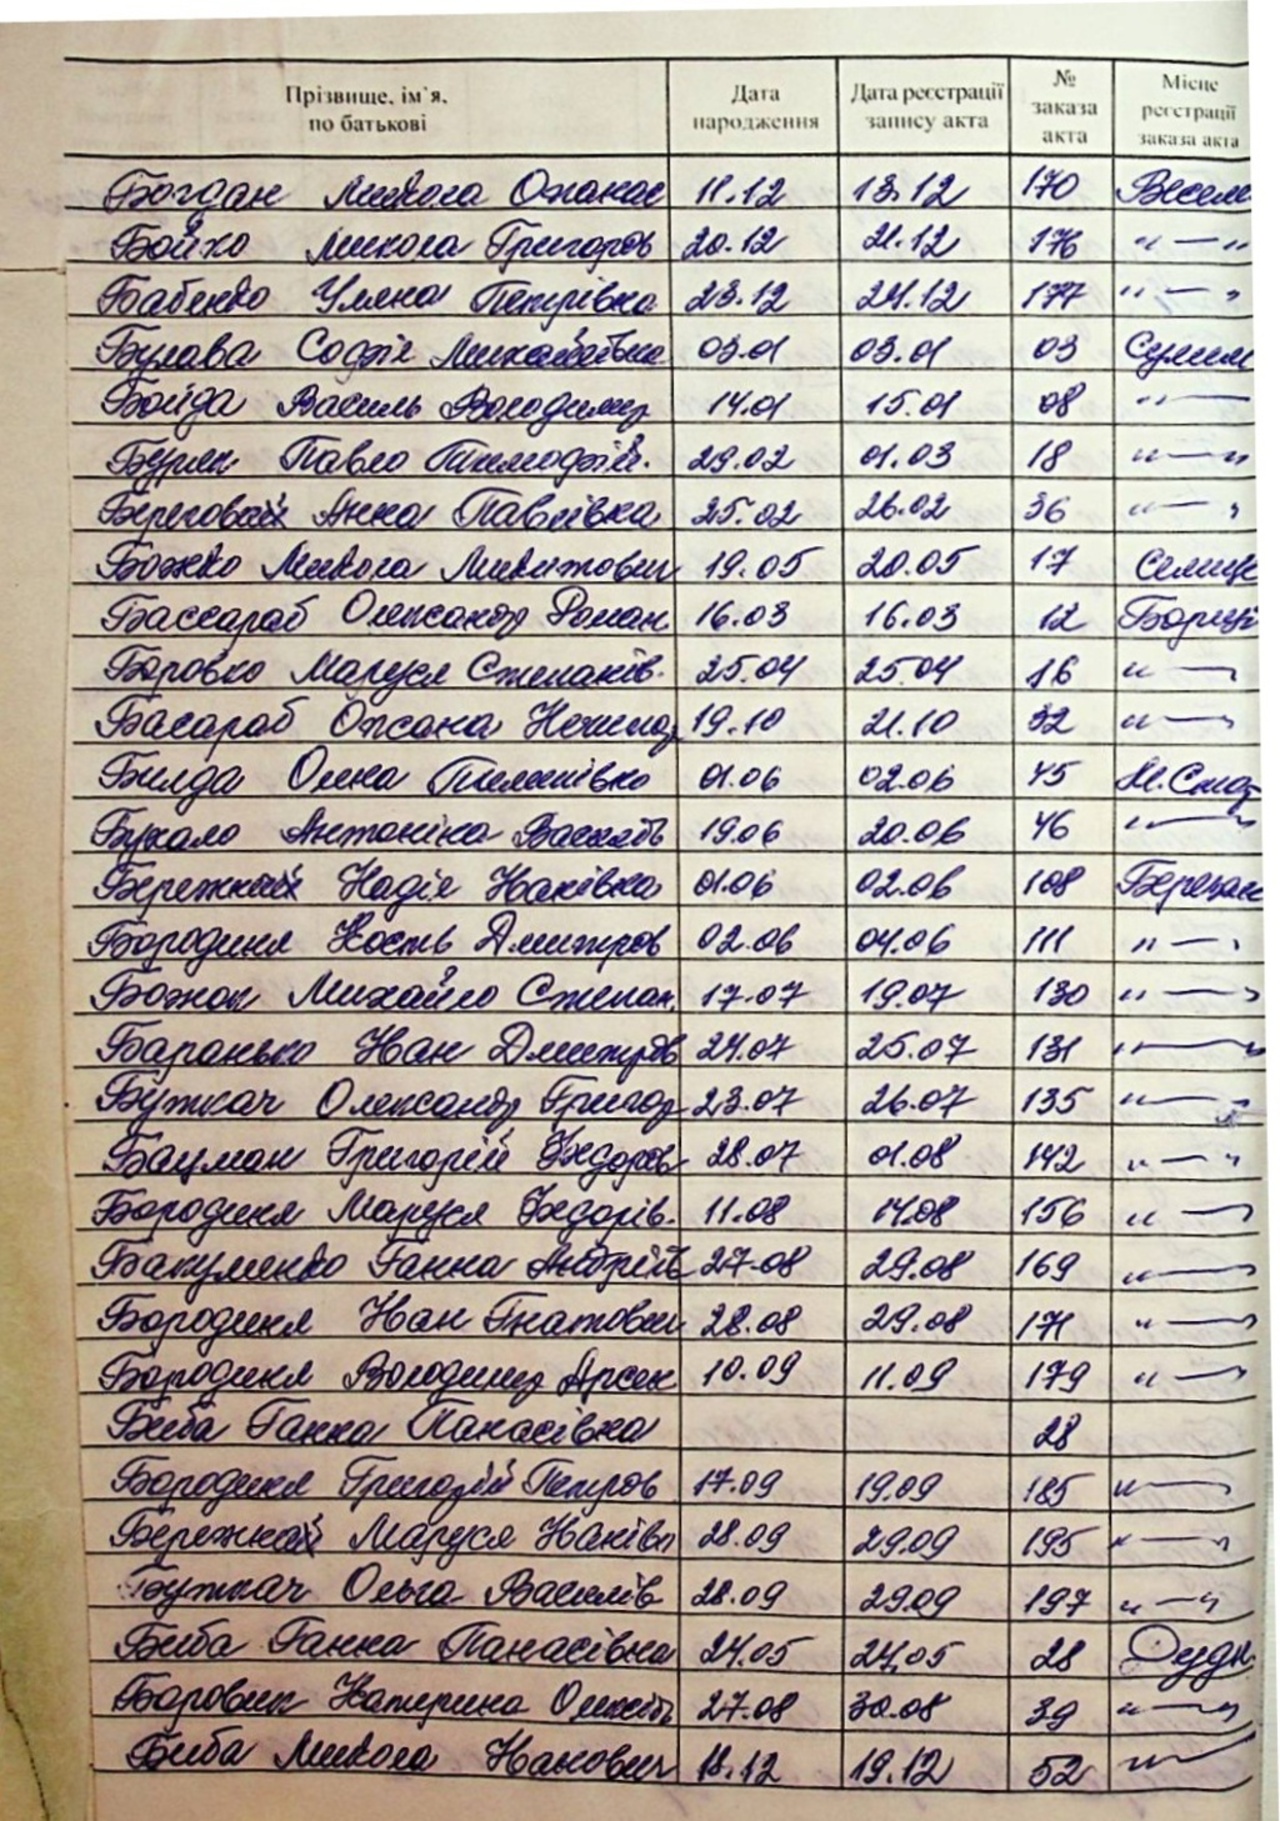 Прізвище, ім'я, по батькові | Дата народження | Дата реєстрації запису акта | № заказа акта | Місце реєстрації заказа акта
Богдан Микола Опанас 11.12 13.12 170 Весели
Бойко Микола Григоров 20.12 21.12 176 " — "
Бабенко Уляна Петрівна 23.12 24.12 177 " — "
Булава Софія Михайлівна 03.01 03.01 03 Сулим
Бойда Василь Володимир 14.01 15.01 08 " —
Бурик Павло Тимофій. 29.02 01.03 18 " — "
Береговай Анна Павлівна 25.02 26.02 36 " — "
Божко Микола Микитович 19.05 20.05 17 Селище
Бассараб Олександр Роман 16.03 16.03 12 Борщі
Боровко Маруся Степанів. 25.04 25.04 16 " — "
Басараб Оксана 19.10 21.10 32 " — "
Билда Олена 01.06 02.06 45 М.
Букало Антоніна Василів 19.06 20.06 46 " — "
Бережнай Надія Іванівна 01.06 02.06 108 Березан
Бородиня Кость Дмитров 02.06 04.06 111 " — "
Божок Михайло Степан. 17.07 19.07 130 " — "
Баранько Іван Дмитров 24.07 25.07 131 " — "
Буткач Олександр Григор 23.07 26.07 135 " — "
Бауман Григорій Федоров 28.07 01.08 142 " — "
Бородиня Маруся Федорів. 11.08 14.08 156 " — "
Бакуменко Ганна Андріїв 27.08 29.08 169 " — "
Бородиня Іван Гнатович 28.08 29.08 171 " — "
Бородиня Володимир Арсен 10.09 11.09 179 " — "
Биба Ганна Панасівна 28
Бородиня Григорій Петров 17.09 19.09 185 " — "
Бережнай Маруся Іванівн 28.09 29.09 195 " — "
Буткач Ольга Василів 28.09 29.09 197 " — "
Биба Ганна Панасівна 24.05 24.05 28 Дудк.
Боровик Катерина Олексіїв 27.08 30.08 39 " — "
Биба Микола Іванович 18.12 19.12 52 " — "